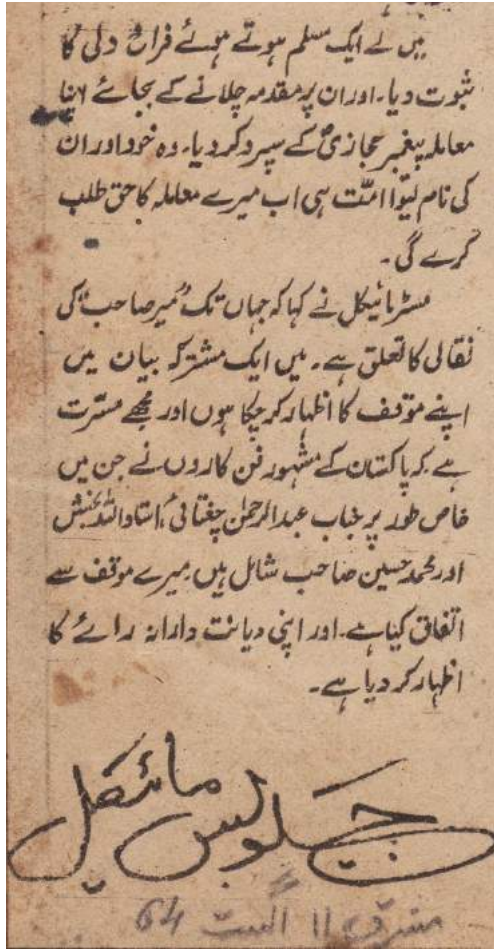 میں نے ایک مسلم ہوتے ہوئے فراخ دلی کا
ثبوت دیا۔ اور ان پر مقدمہ چلانے کے بجائے اپنا
معاملہ پیغمبر حجازیؐ کے سپرد کر دیا۔ وہ خود اور ان
کی نام لیوا امّت ہی اب میرے معاملہ کا حق طلب
کرے گی۔
مسٹر مائیکل نے کہا کہ جہاں تک میر صاحب کی
نقالی کا تعلق ہے۔ میں ایک مشترکہ بیان میں
اپنے موقف کا اظہار کر چکا ہوں اور مجھے مسرّت
ہے کہ پاکستان کے مشہور فن کاروں نے جن میں
خاص طور پر جناب عبدالرحمٰن چغتائی، استاد اللہ بخش
اور محمد حسین صاحب شامل ہیں میرے موقف سے
اتفاق کیا ہے۔ اور اپنی دیانت دارانہ رائے کا
اظہار کر دیا ہے۔
مائیکل
مشرق 11 اگست 64